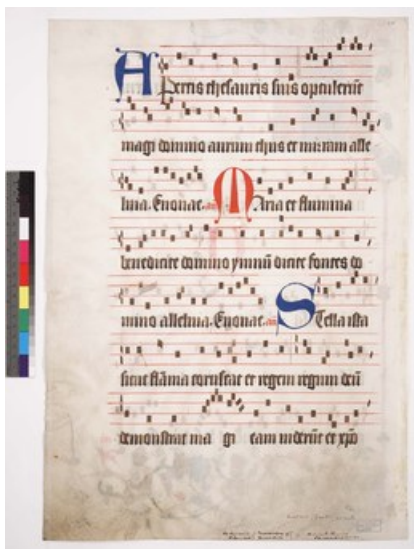 Apertis thesauris suis optulerūt
magi domino aurum thus et mirram alle
luia. Euouae. Maria et flumina
benedicite domino ymnū dicite fontes do
mino alleluia. Euouae. Stella ista
sicut flāma coruscat et regem regum deū
demonstrat ma gi eam viderūt et xp̄o